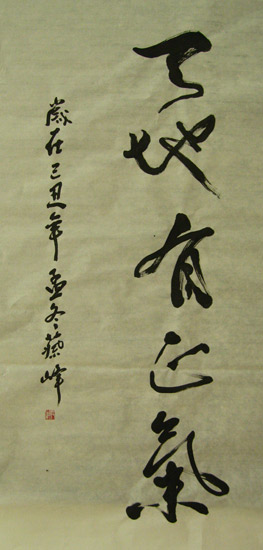 天地有正氣
歲在己丑年孟冬蔡峰